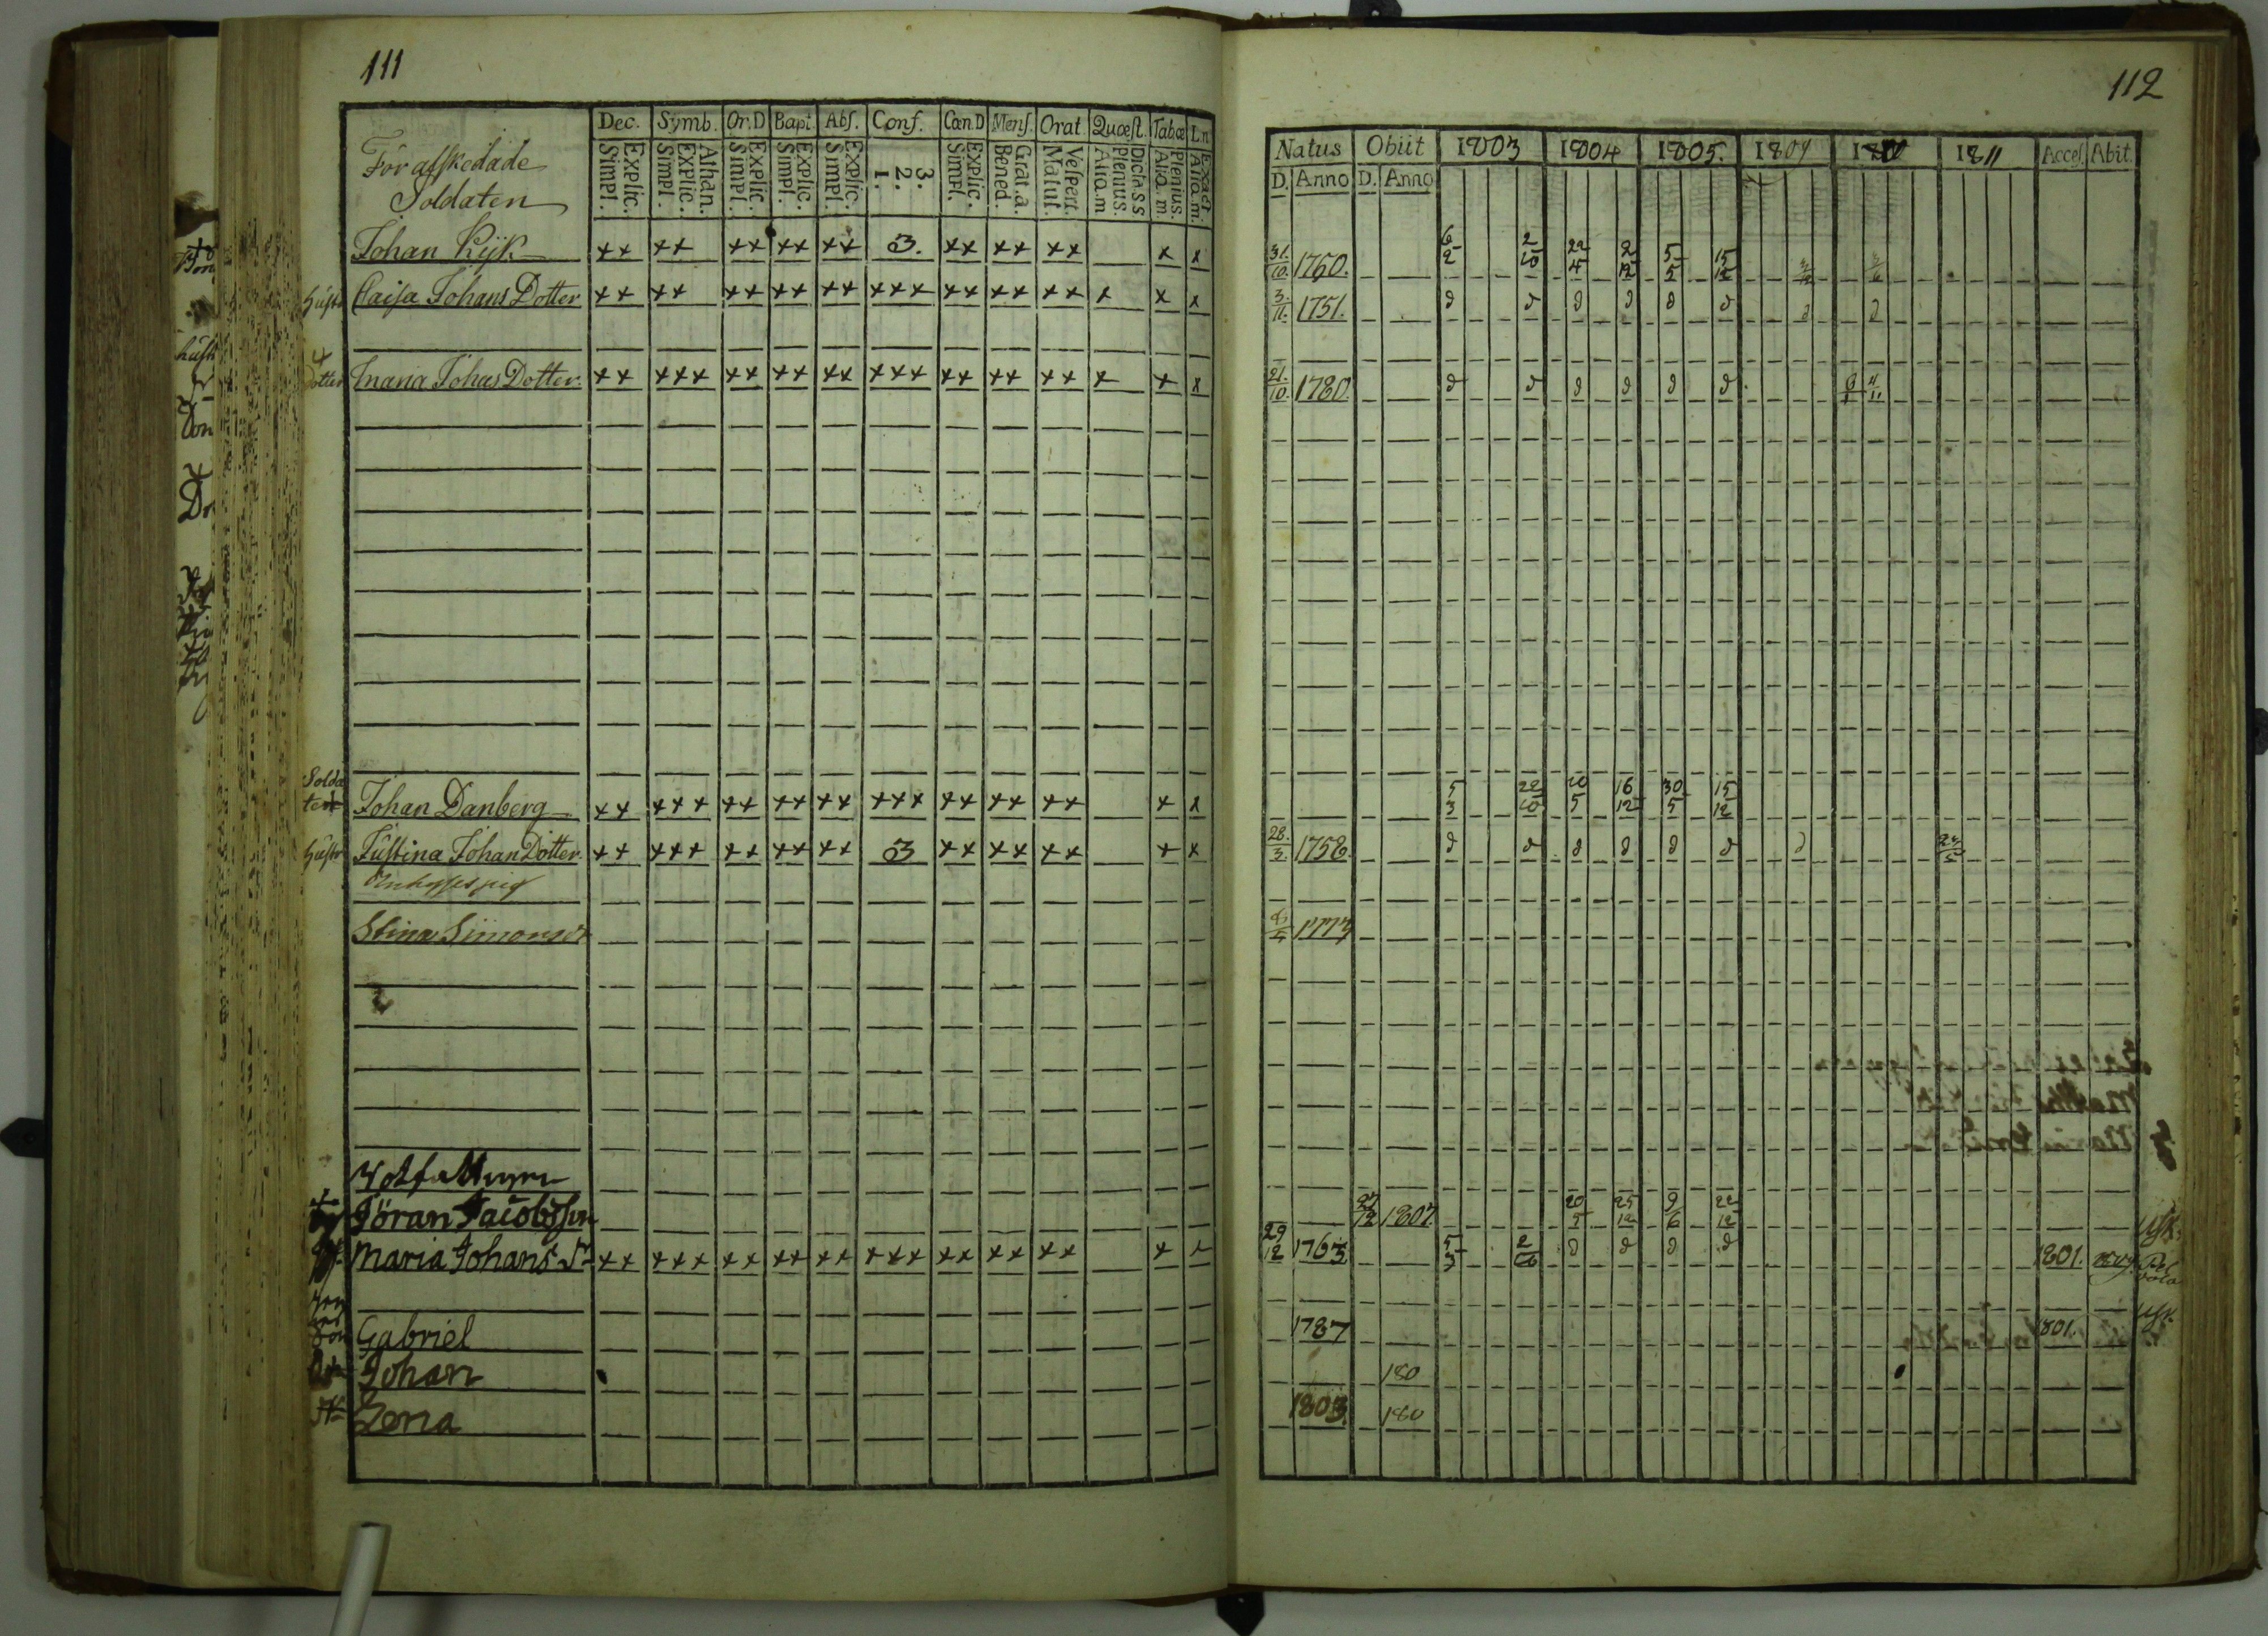 111
Dec. Symb. Or.D Bapt. Abs. Conf. Cœn.D Mens. Orat. Quæst. Tabœ Ln
För afskedade
Soldaten
Explic. Simpl. Athan. Explic. Simpl. Explic. Simpl. Explic. Simpl. Explic. Simpl. 3. 2. 1. Explic. Simpl. Grat.a. Bened. Vespert. Matut. Dicta S S Plenius. Aliq.m Plenius. Aliq.m. Exact. Aliq.m.
Johan Kijk ×× ×× ×× ×× ×× 3. ×× ×× ×× × ×
Hustr Caisa Johans Dotter ×× ×× ×× ×× ×× ××× ×× ×× ×× × × ×
Dotter Maria Johas Dotter. ×× ××× ×× ×× ×× ××× ×× ×× ×× × × ×
Solda
ten Johan Danberg ×× ××× ×× ×× ×× ××× ×× ×× ×× × ×
Hustr Justina Johan Dotter. ×× ××× ×× ×× ×× 3 ×× ×× ×× × ×
Stina Simonsdr
Jöran Jacobsson
Maria Johans dr ×× ××× ×× ×× ×× ××× ×× ×× ×× × ×
Son Gabriel
Johan
Lena
112
Natus Obiit 1803 1804 1805. 1809 1810 1811 Acces. Abit.
D. Anno D. Anno
31/10. 1760. 6/2 2/10 22/4 2/12 5/5 15/12
3./11. 1751. d d d d d d d d
21./10. 1780. d d d d d d
5/3 22/10 20/5 16/12 30/5 15/12
28./3. 1758. d d d d d d d 24/5
1773
27/12 1807. 20/5 25/12 9/6 22/12
29/12 1763. 5/3 2/10 d d d d 1801.
1787 1801.
180
1803. 180